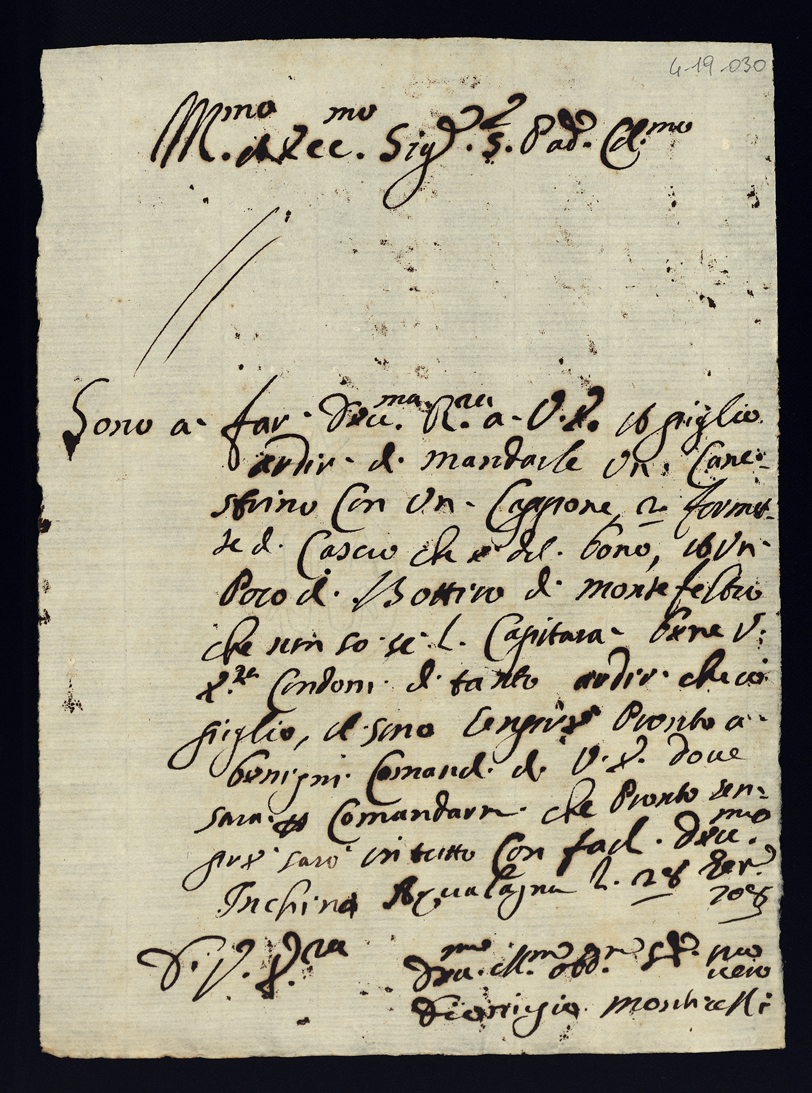 4-19-030
Ill.mo et Ecc.mo Sig.r S. Pad. Col.mo
Sono a far dev.ma R.za a V. E. et piglio
ardir di mandarle un Cane-
strino con un Cappone, 2 format-
te di Cascio che è del bono, et un
Poco di Bottiro di montefeltro
che non so se li Capitara bene V.
E.za Condoni di tanto ardir che io
piglio, et sono sempre Pronto a
benigni Comandi di V. E. dove
sara Comandarmi che Pronto sen-
pre saro in tutto Con farli dev.mo
Inchino Aqualagna li 28
D. V. E.za
Dev.mo obb.mo vero
Dionigio Monticelli